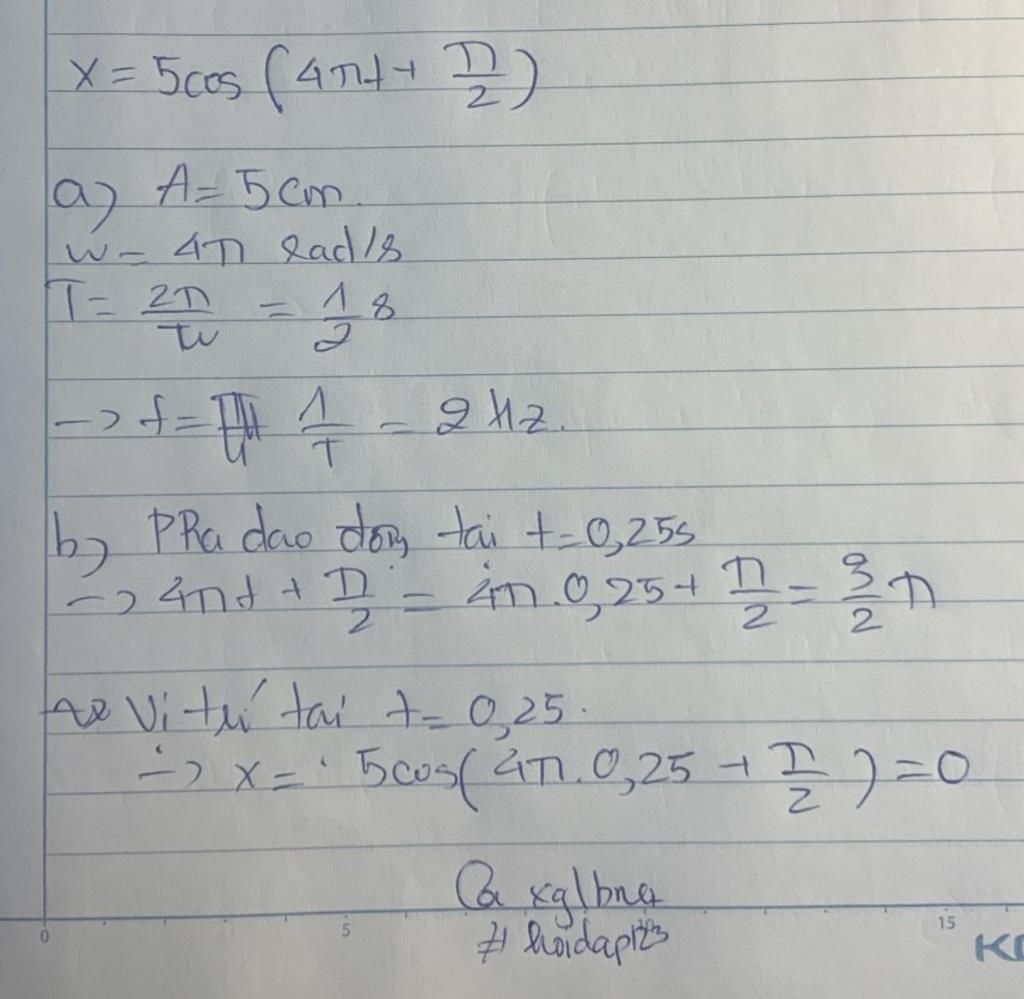 x = 5cos (4πt + π/2)
a) A = 5 cm.
w = 4π rad/s
T = 2π/w = 1/2 s
-> f = 1/T = 2 Hz.
b) Pha dao động tại t = 0,25s
-> 4πt + π/2 = 4π.0,25 + π/2 = 3/2 π
Vị trí tại t = 0,25.
-> x = 5cos(4π.0,25 + π/2) = 0
# hoidap123
0 5 15